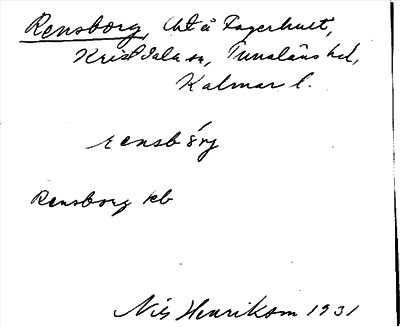 Rensborg, Ut å Fagerhult,
Kristdala sn, Tunaläns hd,
Kalmar l.
rensbǒrj
Rensborg kb
Nils Henrikson 1931